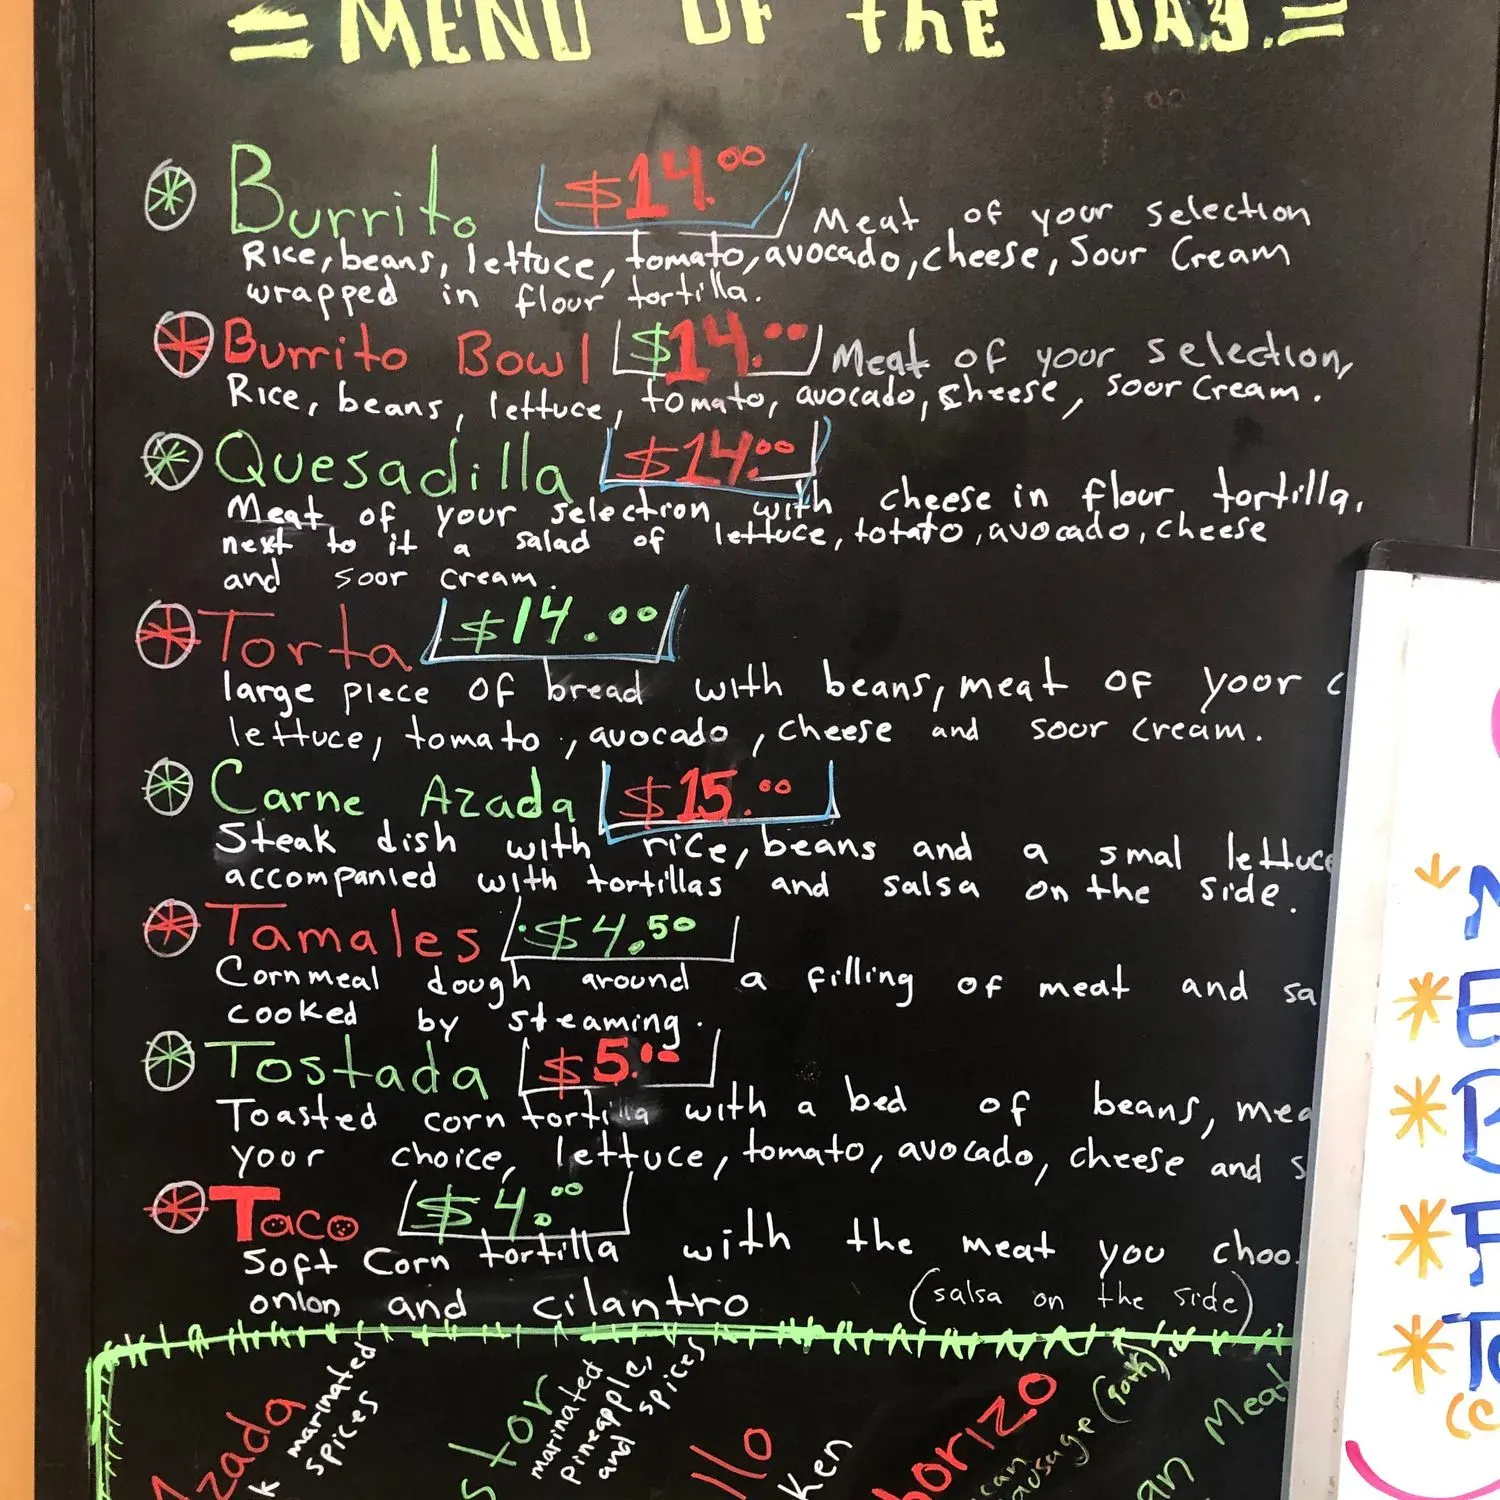 = MENU OF the DAY. =
Burrito $14.00 Meat of your selection
Rice, beans, lettuce, tomato, avocado, cheese, Sour Cream
wrapped in flour tortilla.
Burrito Bowl $14.00 Meat of your selection,
Rice, beans, lettuce, tomato, avocado, cheese, sour Cream.
Quesadilla $14.00
Meat of your selection with cheese in flour tortilla,
next to it a salad of lettuce, totato, avocado, cheese
and soor cream.
Torta $14.00
large piece of bread with beans, meat of yoor c
lettuce, tomato, avocado, cheese and sour cream.
Carne Azada $15.00
Steak dish with rice, beans and a smal lettuce
accompanied with tortillas and salsa on the side.
Tamales $4.50
Cornmeal dough around a filling of meat and sa
cooked by steaming.
Tostada $5.00
Toasted corn tortilla with a bed of beans, mea
your choice, lettuce, tomato, avocado, cheese and s
Taco $4.00
Soft Corn tortilla with the meat you choo
onion and cilantro (salsa on the side)
Azada
marinated
spices
stor
marinated
pineapple,
and spices
llo
ken
horizo
can
sausage (pork)
an Meat